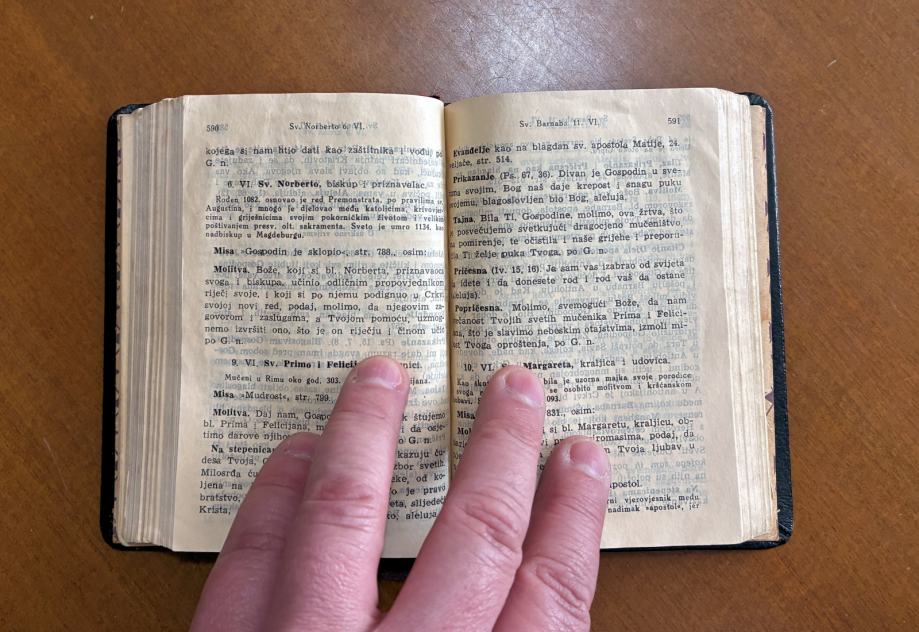 590
Sv. Norberto 6. VI.
kojega si nam htio dati kao zaštitnika i vođu, po
G. n.
6. VI. Sv. Norberto, biskup i priznavalac.
Rođen 1082. osnovao je red Premonstrata, po pravilima sv.
Augustina, i mnogo je djelovao među katolicima, krivovjer-
cima i griješnicima svojim pokorničkim životom i velikim
poštivanjem presv. olt. sakramenta. Sveto je umro 1134. kao
nadbiskup u Magdeburgu.
Misa »Gospodin je sklopio«, str. 788, osim:
Molitva. Bože, koji si bl. Norberta, priznavaoca
svoga i biskupa, učinio odličnim propovjednikom
riječi svoje, i koji si po njemu podignuo u Crkvi
svojoj novi red, podaj, molimo, da njegovim za-
govorom i zaslugama, a Tvojom pomoću, uzmog-
nemo izvršiti ono, što je on riječju i činom učio
po G. n.
9. VI. Sv. Primo i
Mučeni u Rimu oko god. 303.
Misa »Mudrost«, str. 799,
Molitva. Daj nam, štujemo
bl. Prima i Felicijana, da osje-
timo darove njihov G. n.
Na stepenicam kazuju ču-
desa Tvoja, zbor svetih.
Milosrđa
ljena na je pravo
bratstvo, slijedeć
Krista, aleluja
591
Sv. Barnaba 11. VI.
Evanđelje kao na blagdan sv. apostola Matije, 24.
veljače, str. 514.
Prikazanje (Ps. 67, 36). Divan je Gospodin u sve-
svojim, Bog naš daje krepost i snagu puku
svojemu, blagoslovljen bio Bog, aleluja.
Tajna. Bila Ti, Gospodine, molimo, ova žrtva, što
je posvećujemo svetkujući dragocjeno mučeništvo,
na pomirenje, te očistila i naše grijehe i preporu-
čila Ti želje puka Tvoga, po G. n.
Pričesna (Iv. 15, 16). Ja sam vas izabrao od svijeta
da idete i da donesete rod i rod vaš da ostane
(aleluja).
Popričesna. Molimo, svemogući Bože, da nam
svečanost Tvojih svetih mučenika Prima i Felici-
jana, što je slavimo nebeskim otajstvima, izmoli mi-
lost Tvoga oproštenja, po G. n.
10. VI. Sv. Margareta, kraljica i udovica.
Kao bila je uzorna majka svoje porodice
svoga se osobito molitvom i kršćanskom
093.
Misa 831. osim:
si bl. Margaretu, kraljicu, ob-
siromasima, podaj, da
Tvoja ljubav u
apostol.
vjerovjesnik među
nadimak »apostol«, jer